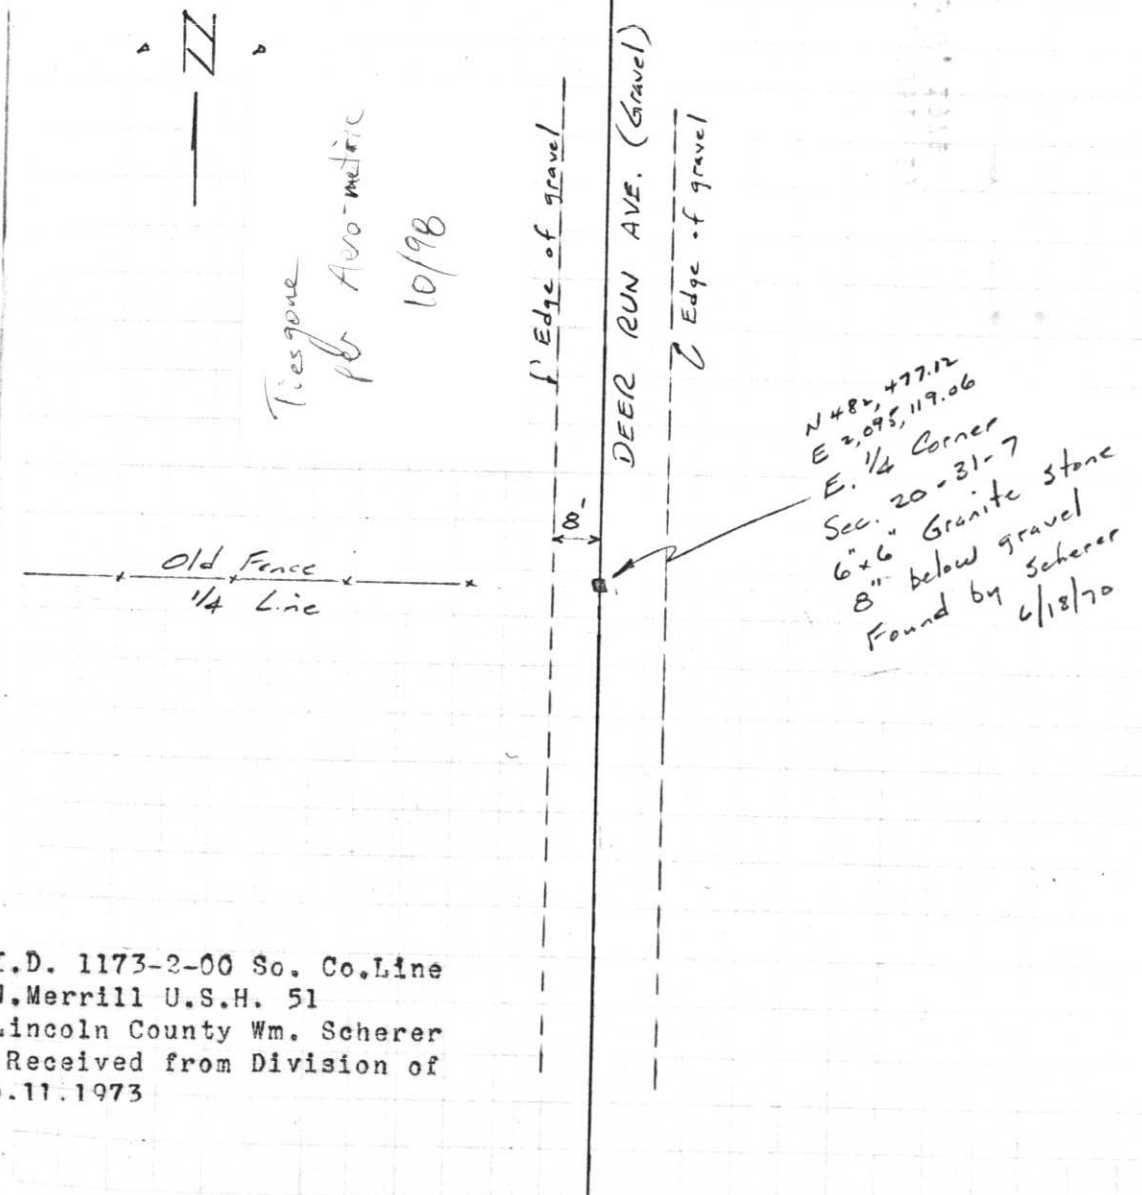 N
Ties gone
per Aero-metric
10/98
Edge of gravel
DEER RUN AVE. (Gravel)
Edge of gravel
8'
Old Fence
1/4 Line
N 482,477.12
E 2,095,119.06
E. 1/4 Corner
Sec. 20-31-7
6"x6" Granite Stone
8" below gravel
Found by Scherer
6/18/70
I.D. 1173-2-00 So. Co.Line
N.Merrill U.S.H. 51
Lincoln County Wm. Scherer
Received from Division of
.11.1973